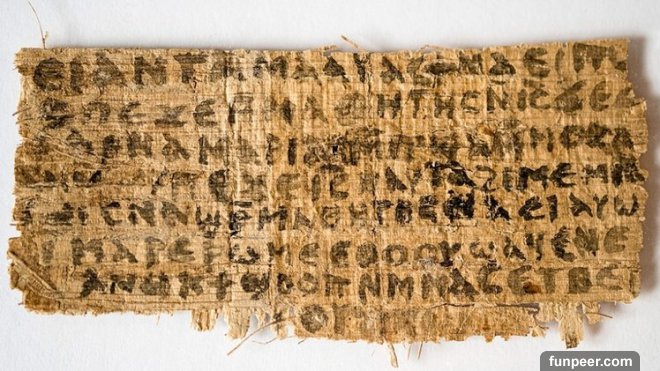 ⲉⲓ ⲁⲛ ⲧⲁⲙⲁⲁⲩ ⲁⲥϯ ⲛⲁⲉⲓ ⲡ
ⲡⲉϫⲉ ⲙⲙⲁⲑⲏⲧⲏⲥ ⲛⲓⲥ ϫⲉ ⲥ
ⲁⲣⲛⲁ ⲙⲁⲣⲓⲁⲙ ⲙⲡϣⲁ ⲙⲙⲟⲥ ⲁ
ⲡⲉϫⲉ ⲓⲥ ⲛⲁⲩ ⲧⲁϩⲓⲙⲉ ⲙⲛ
ⲥⲛⲁϣⲣⲙⲁⲑⲏⲧⲏⲥ ⲛⲁⲉⲓ ⲁⲩⲱ
ⲓ ⲙⲁⲣⲉⲣⲱⲙⲉ ⲉⲑⲟⲟⲩ ϣⲁϥⲉ ⲛⲉ
ⲁⲛⲟⲕ ϯϣⲟⲟⲡ ⲛⲙⲙⲁⲥ ⲉⲧⲃⲉ
funpeer.com